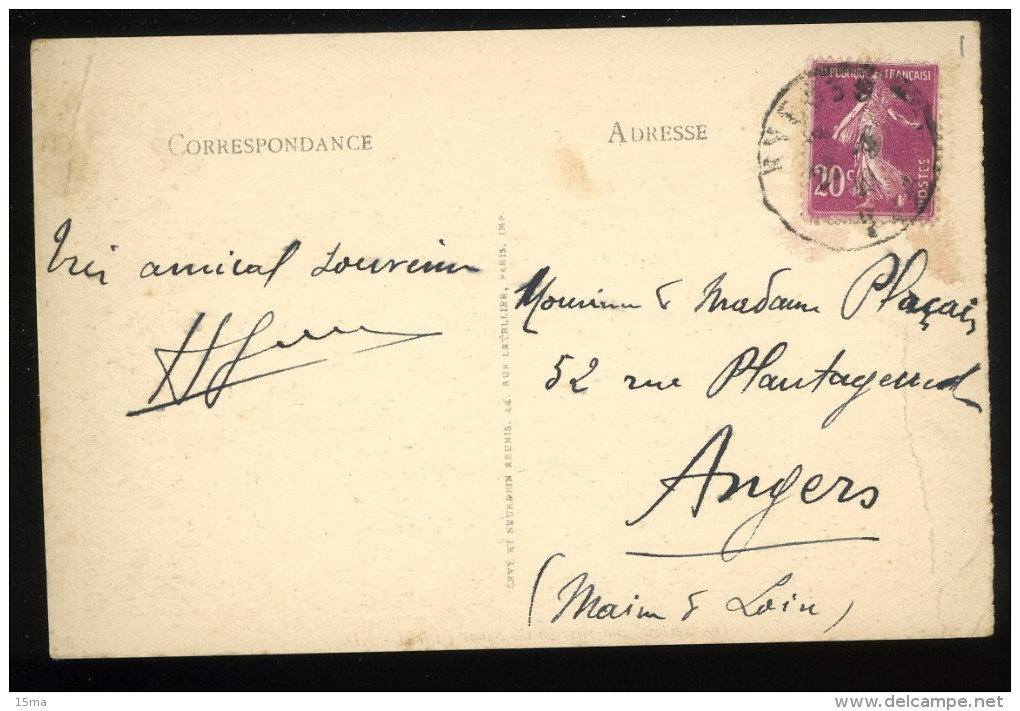 CORRESPONDANCE
ADRESSE
RÉPUBLIQUE FRANÇAISE
20c
POSTES
Très amical souvenir
LEVY ET NEURDEIN REUNIS, 44, RUE LETELLIER, PARIS, IMP.
Monsieur & Madame Plaçais
52 rue Plantagenet
Angers
(Maine & Loire)
15ma
www.delcampe.net